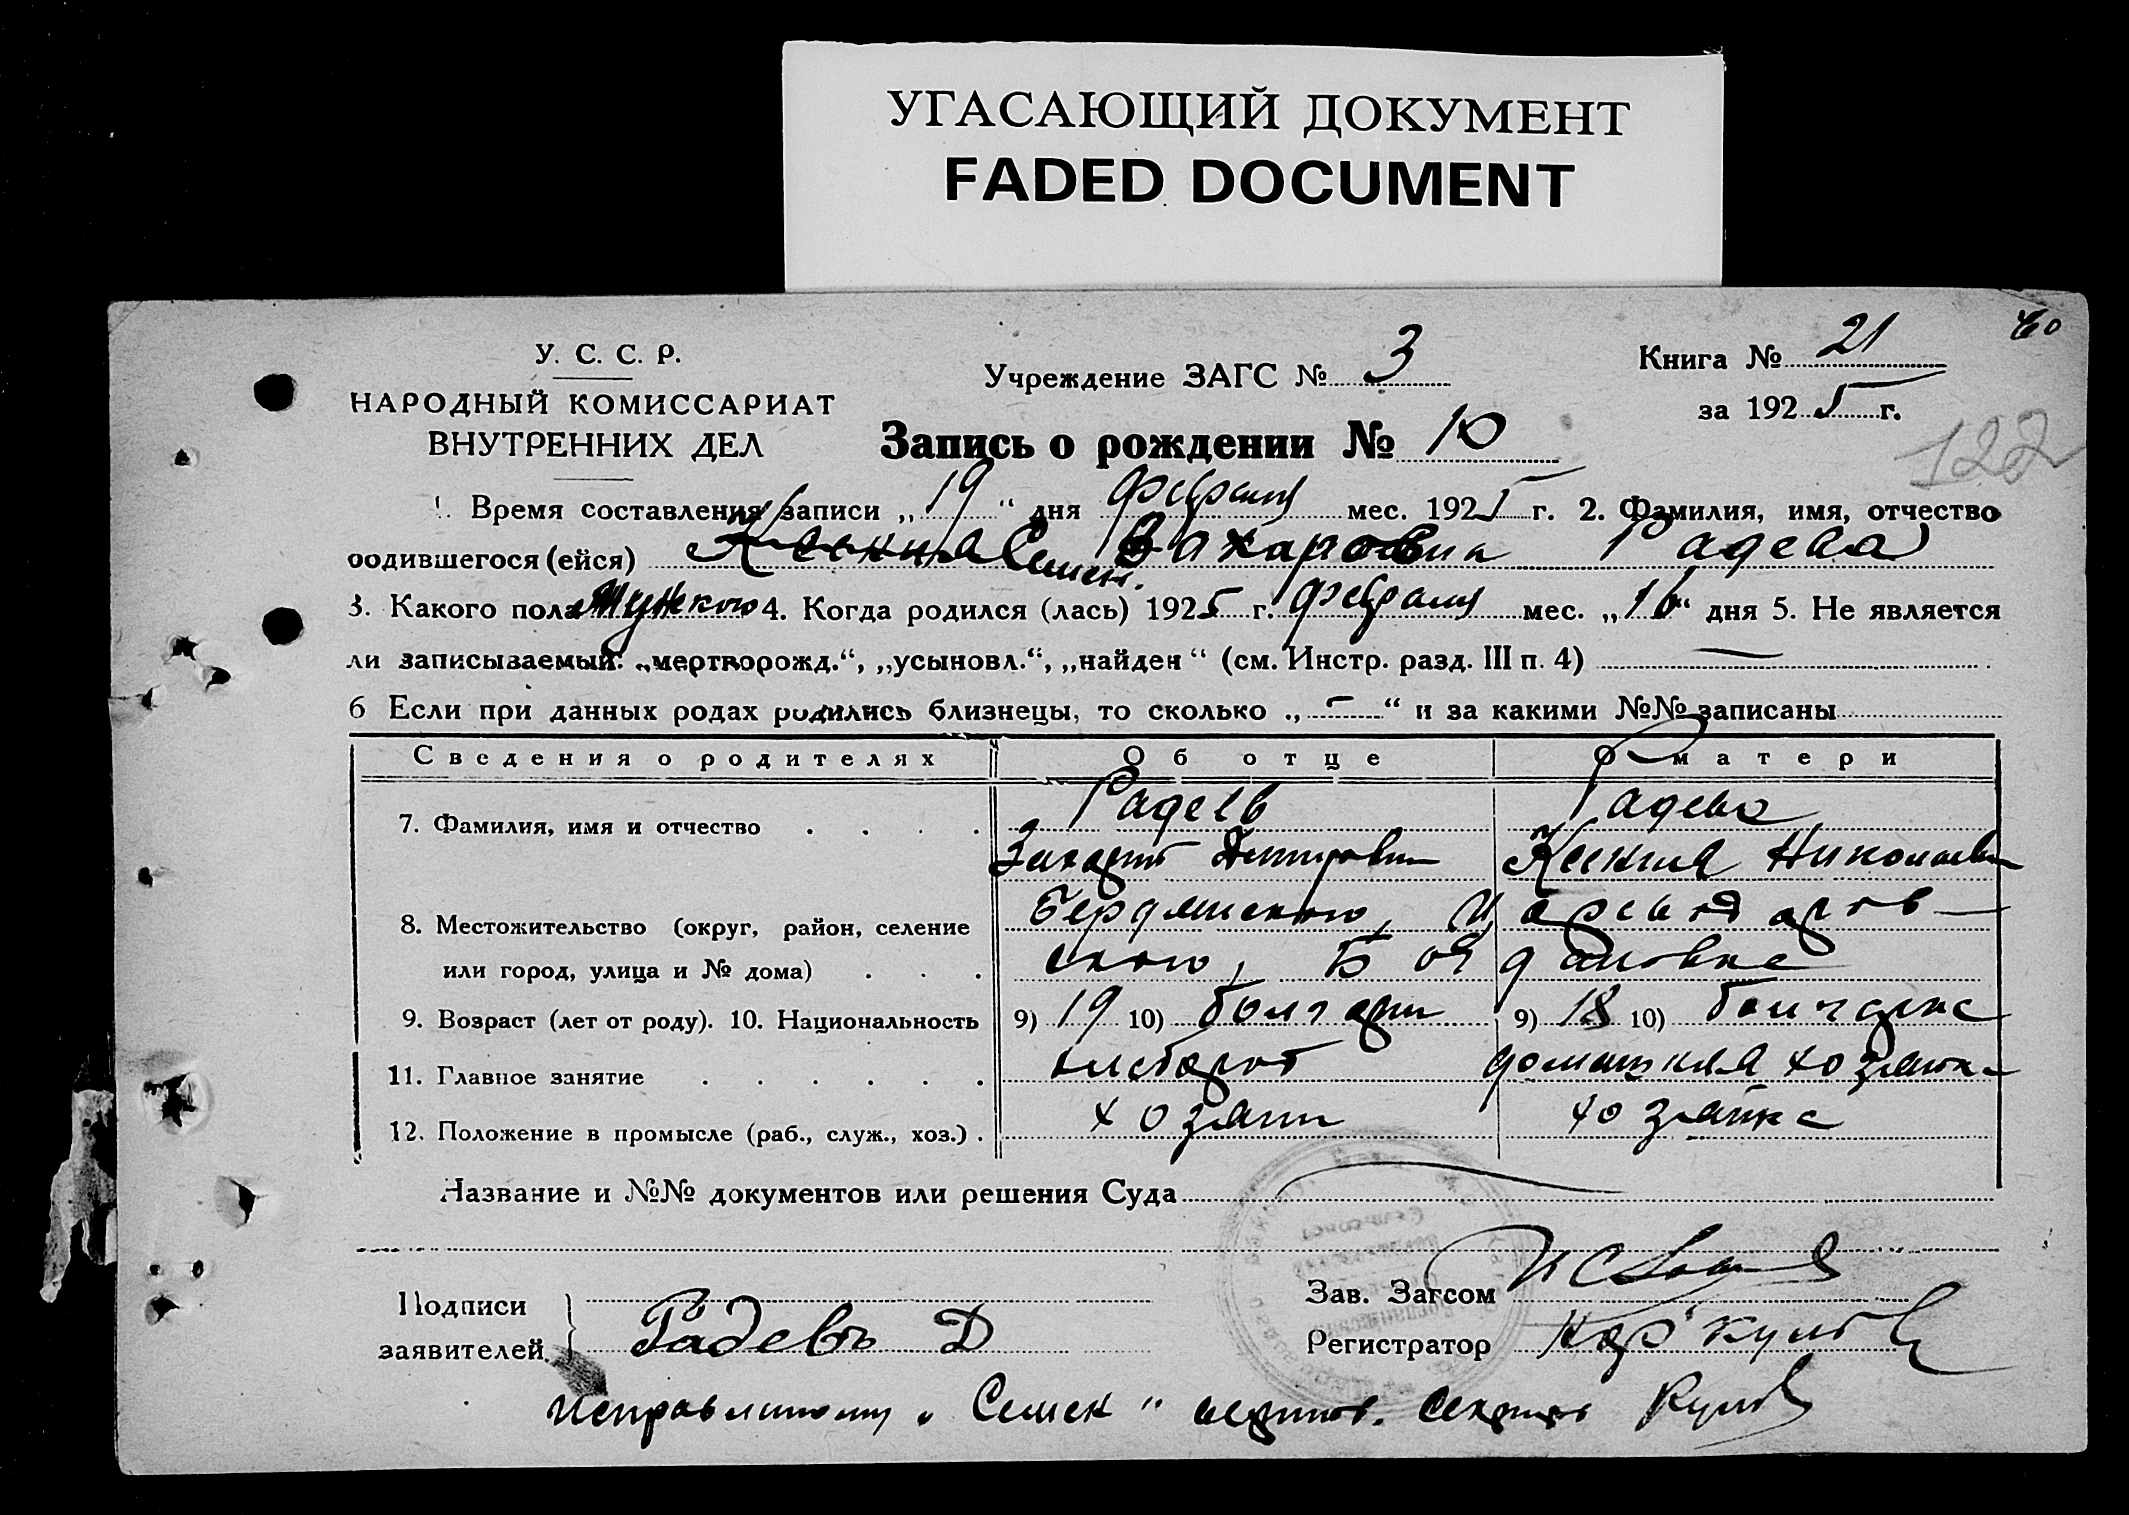 УГАСАЮЩИЙ ДОКУМЕНТ
FADED DOCUMENT
У. С. С. Р.
НАРОДНЫЙ КОМИССАРИАТ
ВНУТРЕННИХ ДЕЛ
Учреждение ЗАГС № 3
Книга № 21
за 1925 г.
122
Запись о рождении № 10
1. Время составления записи „19“ дня февраля мес. 1925 г. 2. Фамилия, имя, отчество
родившегося (ейся) Ксения Семен. Захаровна Радева
3. Какого пола Мужского 4. Когда родился (лась) 1925 г. февраля мес. „16“ дня 5. Не является
ли записываемый: „мертворожд.“, „усыновл.“, „найден“ (см. Инстр. разд. III п. 4) —
6 Если при данных родах родились близнецы, то сколько „—“ и за какими №№ записаны
Сведения о родителях Об отце О матери
7. Фамилия, имя и отчество Радев Радева
Захарий Дмитрович Ксения Николаевн
8. Местожительство (округ, район, селение Бердянского, Цареводаров-
или город, улица и № дома) ского, Богдановке
9. Возраст (лет от роду). 10. Национальность 9) 19 10) болгарин 9) 18 10) болгарка
11. Главное занятие хлебороб домашняя хозяйка
12. Положение в промысле (раб., служ., хоз.) хозяин хозяйка
Название и №№ документов или решения Суда
Подписи
заявителей Радевъ Д
Зав. Загсом
Регистратор
Исправленному „Семен“ верить. Секретарь